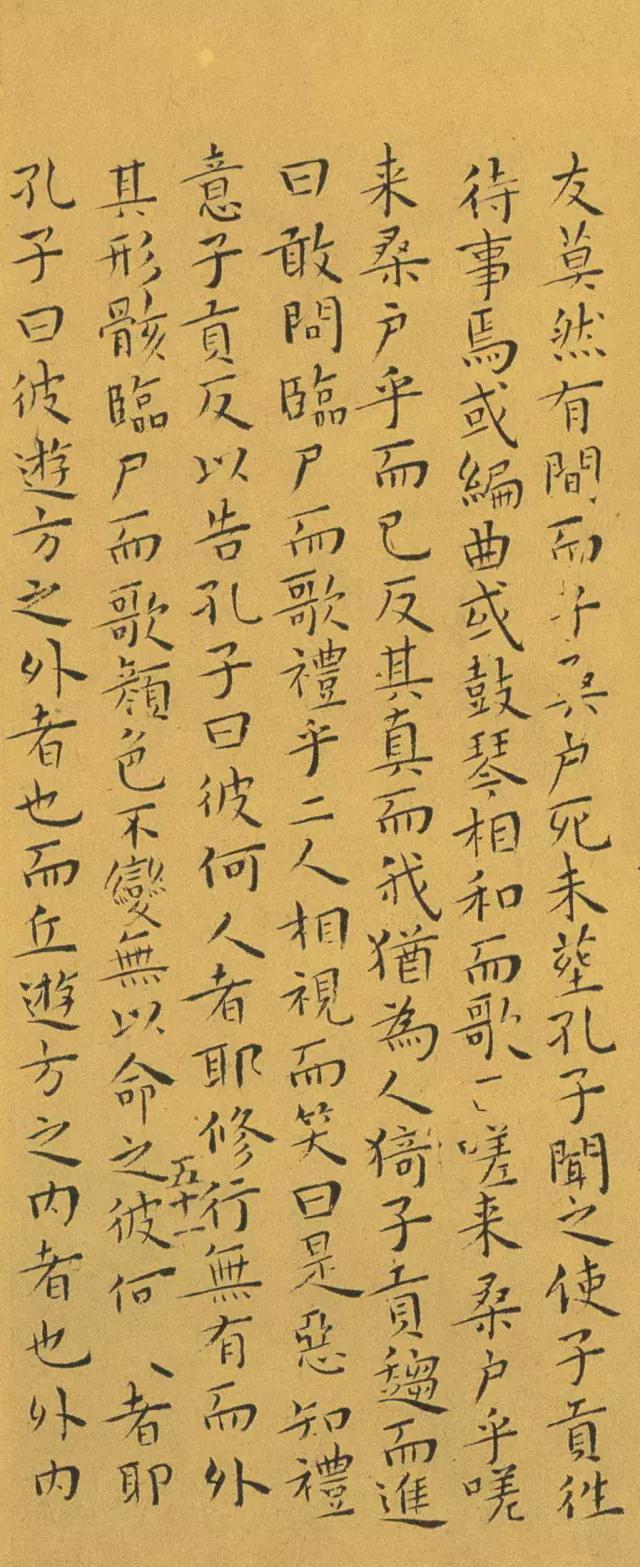 友莫然有間而子桑户死未塟孔子聞之使子貢往
待事焉或編曲或鼓琴相和而歌嗟来桑户乎嗟
来桑户乎而已反其真而我猶為人猗子貢趨而進
曰敢問臨尸而歌禮乎二人相視而笑曰是惡知禮
意子貢反以告孔子曰彼何人者耶修行無有而外
其形骸臨尸而歌顔色不變無以命之彼何者耶
五十一
孔子曰彼遊方之外者也而丘遊方之内者也外内